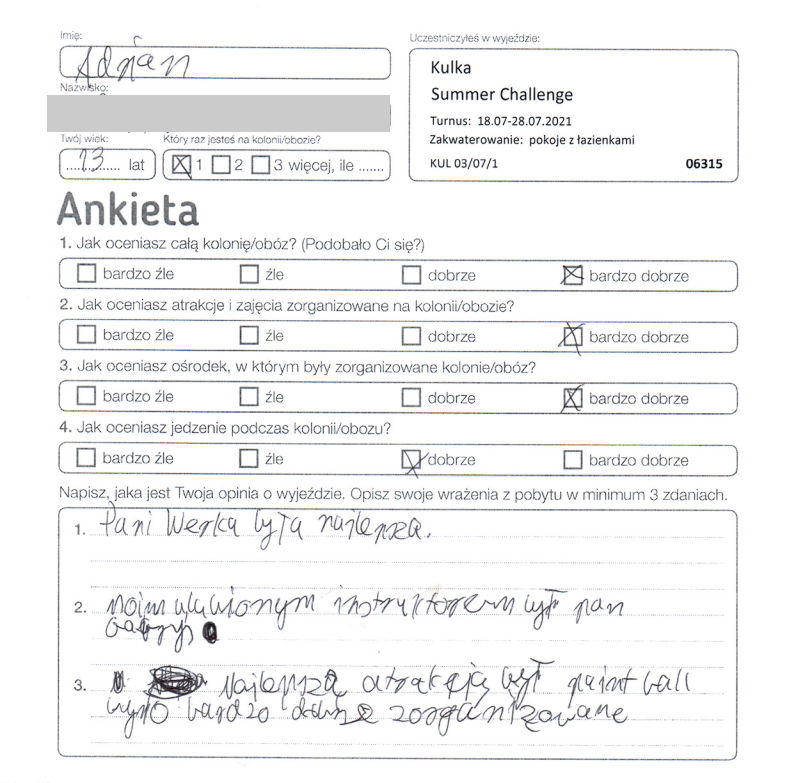 Imię:
Adrian
Nazwisko:
Twój wiek:
13 lat
Który raz jesteś na kolonii/obozie?
1 2 3 więcej, ile .......
Uczestniczyłeś w wyjeździe:
Kulka
Summer Challenge
Turnus: 18.07-28.07.2021
Zakwaterowanie: pokoje z łazienkami
KUL 03/07/1 06315
Ankieta
1. Jak oceniasz całą kolonię/obóz? (Podobało Ci się?)
bardzo źle źle dobrze bardzo dobrze
2. Jak oceniasz atrakcje i zajęcia zorganizowane na kolonii/obozie?
bardzo źle źle dobrze bardzo dobrze
3. Jak oceniasz ośrodek, w którym były zorganizowane kolonie/obóz?
bardzo źle źle dobrze bardzo dobrze
4. Jak oceniasz jedzenie podczas kolonii/obozu?
bardzo źle źle dobrze bardzo dobrze
Napisz, jaka jest Twoja opinia o wyjeździe. Opisz swoje wrażenia z pobytu w minimum 3 zdaniach.
1. Pani Werka była najlepsza.
2. moim ulubionym instruktorem był pan
3. Najlepszą atrakcją był paint ball
było bardzo dobrze zorganizowane